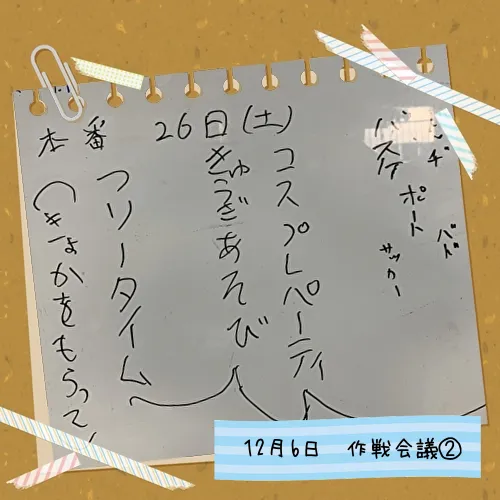 本番 26日(土)
ドッヂ
バド
バスケ
ポートサッカー
コスプレパーティ
きゅうぎあそび
フリータイム
(きょかをもらって
12月6日 作戦会議②